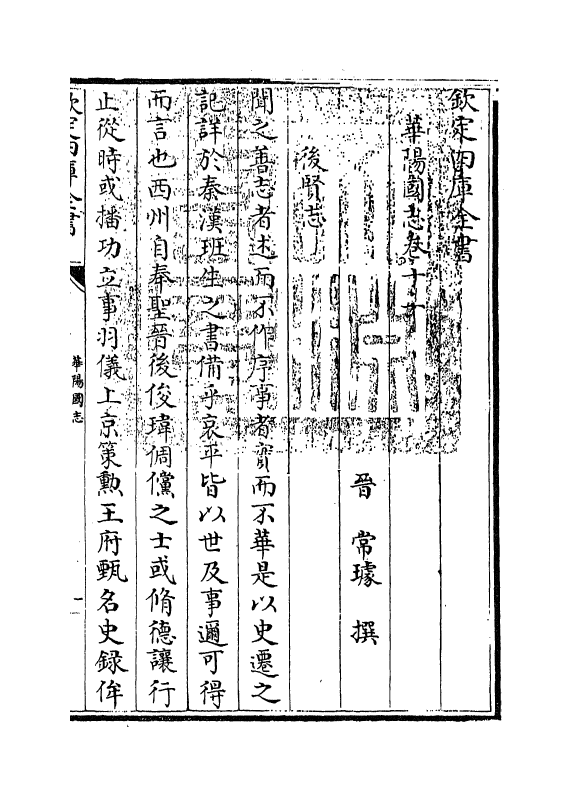 欽定四庫全書
華陽國志卷十一
晉 常璩 撰
後賢志
聞之善志者述而不作序事者實而不華是以史遷之
記詳於秦漢班生之書備乎哀平皆以世及事邇可得
而言也西州自奉聖晉後俊瑋倜儻之士或脩德讓行
止從時或播功立事羽儀上京策勲王府甄名史錄侔
欽定四庫全書
華陽國志
一